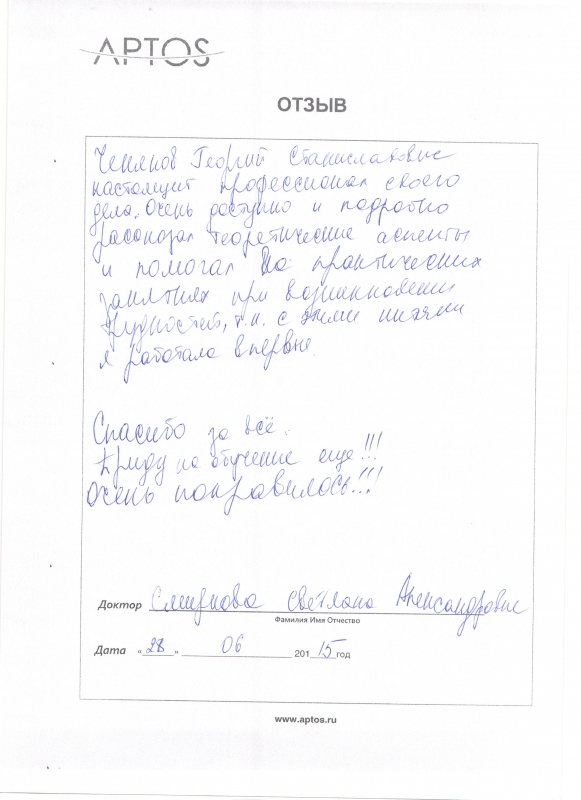 APTOS
ОТЗЫВ
Георгий Станиславович
настоящий профессионал своего
дела. Очень доступно и подробно
рассказал теоретические аспекты
и помогал на практических
занятиях при возникновении
трудностей, т.к. с этими нитями
я работала впервые.
Спасибо за всё.
Приду на обучение еще!!!
Очень понравилось!!!
Доктор Смирнова Светлана Александровна
Фамилия Имя Отчество
Дата «28» 06 2015 год
www.aptos.ru